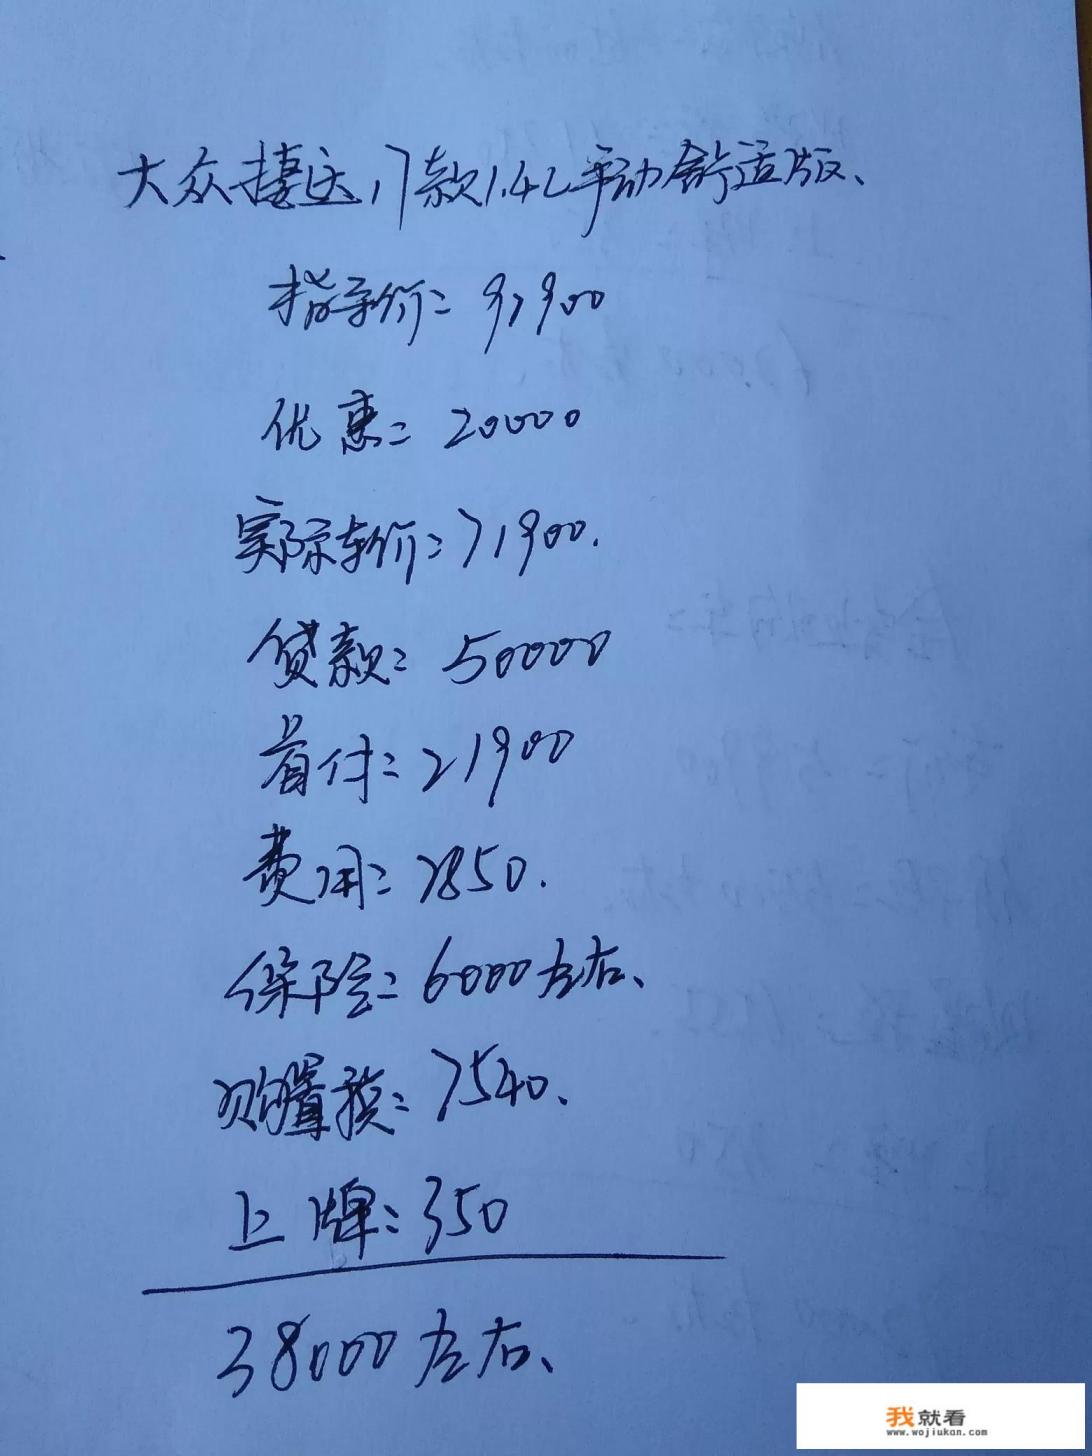 大众捷达17款1.4L手动舒适版、
指导价: 91900
优惠: 20000
实际车价: 71900.
贷款: 50000
首付: 21900
费用: 2850.
保险: 6000左右、
购置税: 7540、
上牌: 350
38000左右、
我就看
www.wojiukan.com